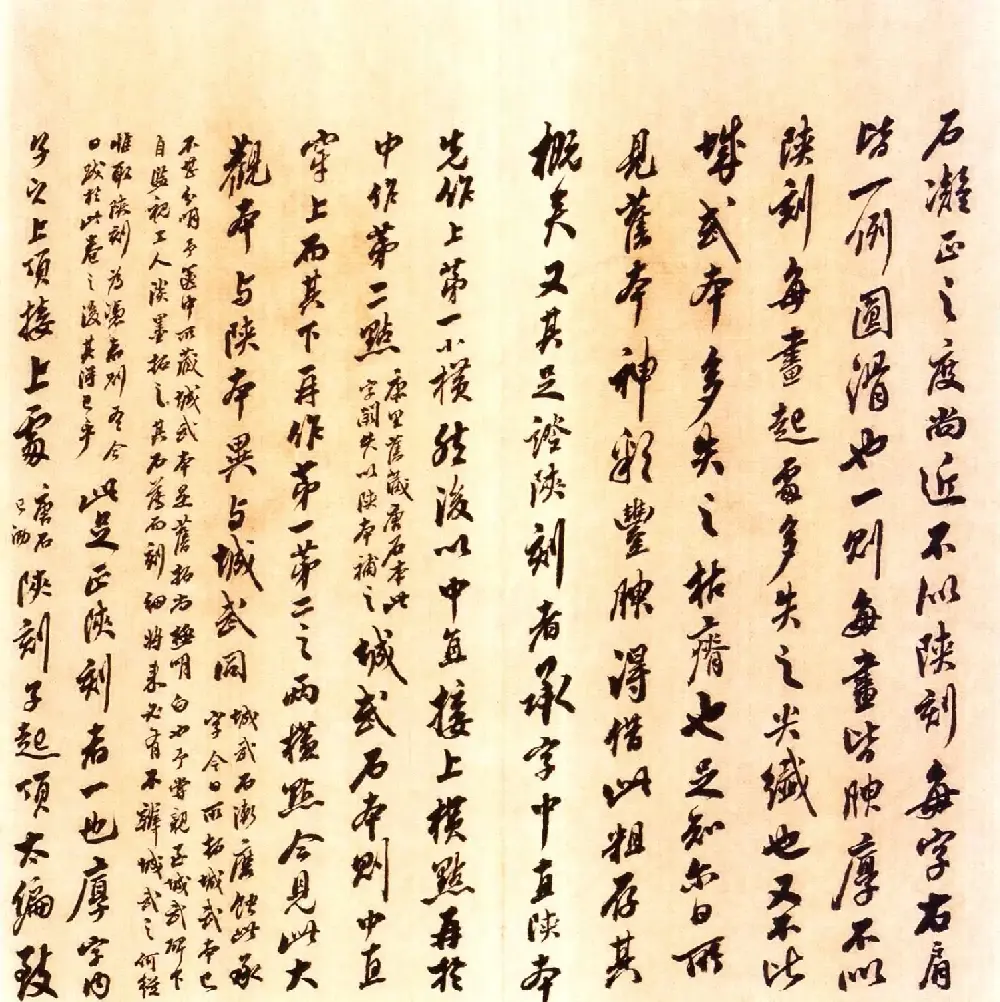 石凝正之度尚近不似陝刻每字右肩
皆一例圓滑也一則每畫皆腴厚不似
陝刻每畫起處多失之尖纖也又不比
城武本多失之枯瘠也足知尔日所
見舊本神彩豐腴得借此粗存其
概矣又其足證陝刻者承字中直陝本
先作上第一小橫然後以中直接上橫點再於
中作第二點
康里舊藏唐石本此
字闕失以陝本補之
城武石本則中直
穿上而其下再作第一第二之兩橫點今見此大
觀本与陝本異与城武同
城武石漸蝕此承
字今日所拓城武本已
不甚分明予篋中所藏城武本是舊拓尚極明白也予嘗親至城武碑下
自監視工人淡墨拓之其石舊而刻細將來必有不辨城武之何從
惟取陝刻為憑者則吾今
日跋於此卷之後其得已乎
此足正陝刻者一也厚字內
子之上項接上處
唐石
已泐
陝刻子起項太偏致